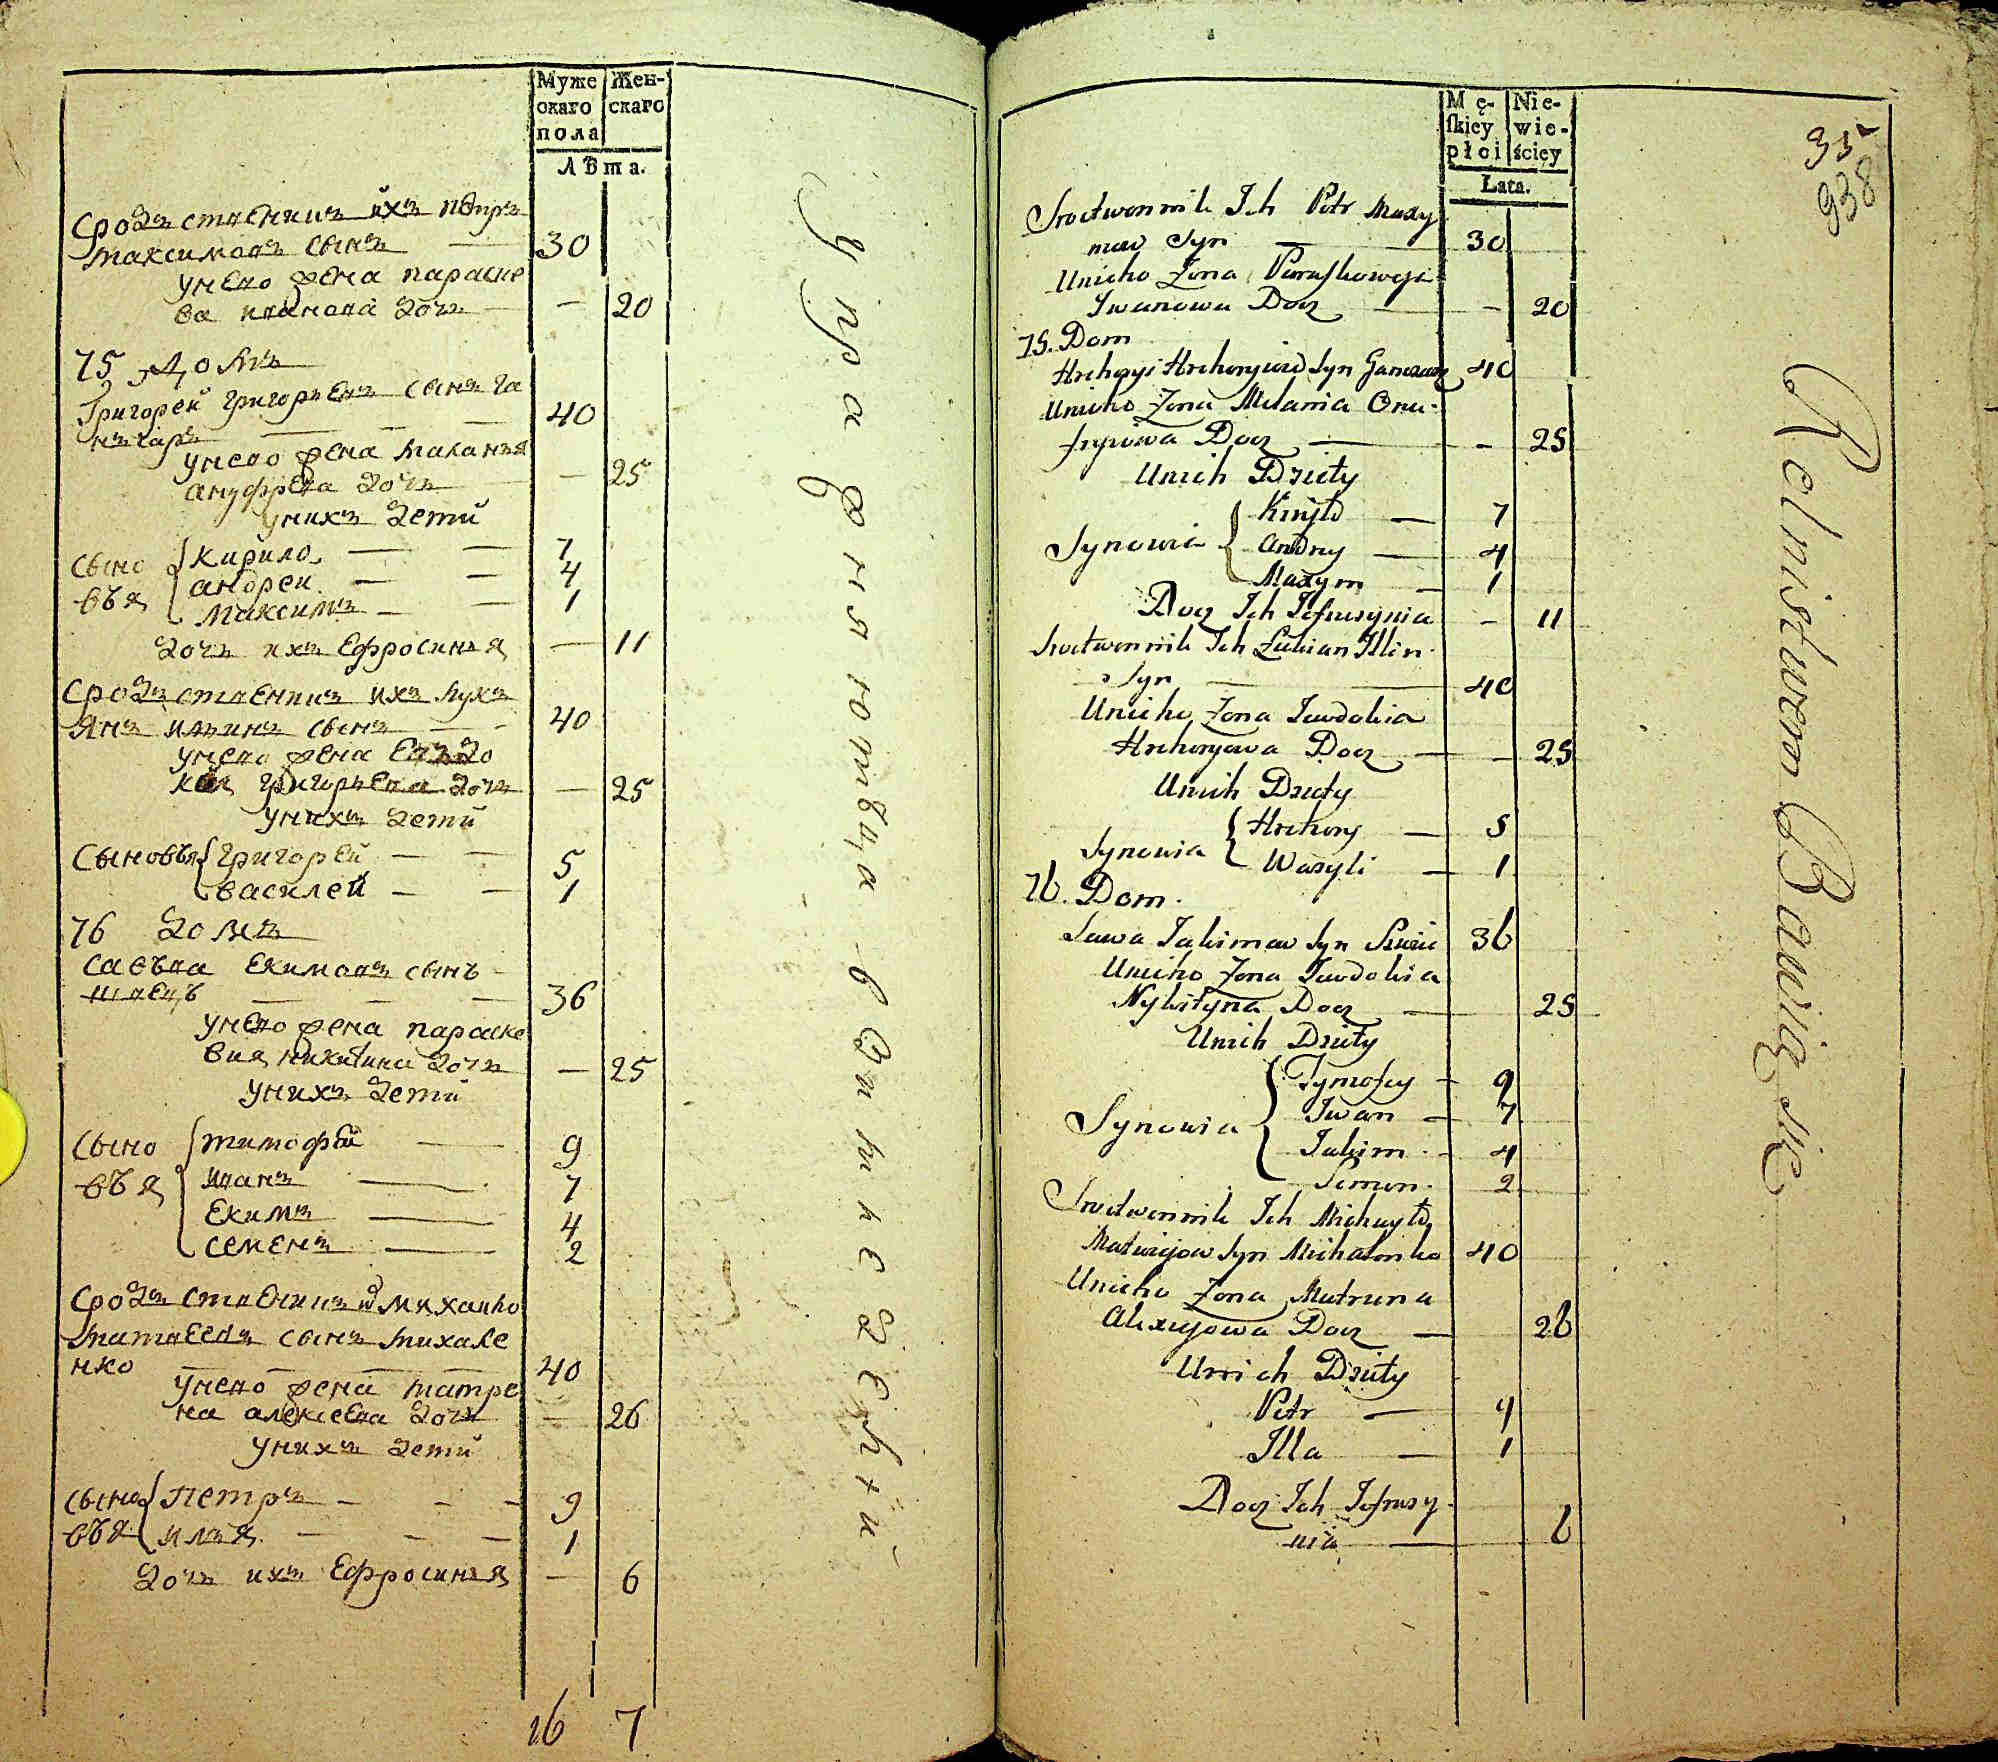 Муже
скаго
пола
Жен-
скаго
Лѣта.
Сродственникъ ихъ петръ
максимовъ сынъ — 30
унево жена параске
ва иванова дочь — 20
75 домъ
Григорей григорьевъ сынъ га
нчаръ — 40
унево жена маланья
ануфрева дочь — 25
унихъ дети
сыно кирило — 7
андреи — 4
вья максимъ — 1
дочь ихъ Ефросинья — 11
сродственникъ ихъ лукь
янъ ильинъ сынъ — 40
унево жена Евдо
кея григорьева дочь — 25
унихъ дети
сыновья григорей — 5
василей — 1
76 домъ
савва Екимовъ сынъ
швецъ — 36
унево жена параске
вия никитина дочь — 25
унихъ дети
сыно тимофей — 9
вья иванъ — 7
Екимъ — 4
семенъ — 2
сродственникъ михайло
матвеевъ сынъ михале
нко — 40
унево жена матре
на алексеева дочь — 26
унихъ дети
сыно петръ — 9
вья илья — 1
дочь ихъ Ефросинья — 6
16 7
упражняютъца в винкеде
Mę-
ſkiey
płci
Nie-
wie-
ściey
Lata.
35
938
Srodtwennik Ich Petr Maxy
mow Syn — 30
Unieho Zona Paraskoweja
Iwanowa Docz — 20
75. Dom
Hrehoryi Hrehoryiow Syn Ganczar 40
Unieho Zona Melania Onu-
fryiowa Docz — 25
Unich Dziety
Kiryło — 7
Synowia Andrey — 4
Maxym — 1
Docz Ich Jefrusynia — 11
Srodtwennik Ich Łukian Illin
Syn — 40
Unieho Zona Iewdokia
Hrehoryowa Docz — 25
Unich Dziety
Hrehory — 5
Synowia Wasyli — 1
76. Dom.
Sawa Iakimow Syn Szwiec 36
Unieho Zona Iewdokia
Nykityna Docz — 25
Unich Dziety
Tymofiey — 9
Iwan — 7
Synowia Iakim — 4
Semen — 2
Srodtwennik Ich Michayło
Matwiejow Syn Michalenko 40
Unieho Zona Matruna
Alexiejowa Docz — 26
Unich Dziety
Petr — 9
Illa — 1
Docz Ich Jefrusy
nia — 6
Rolnistwem Bawią się